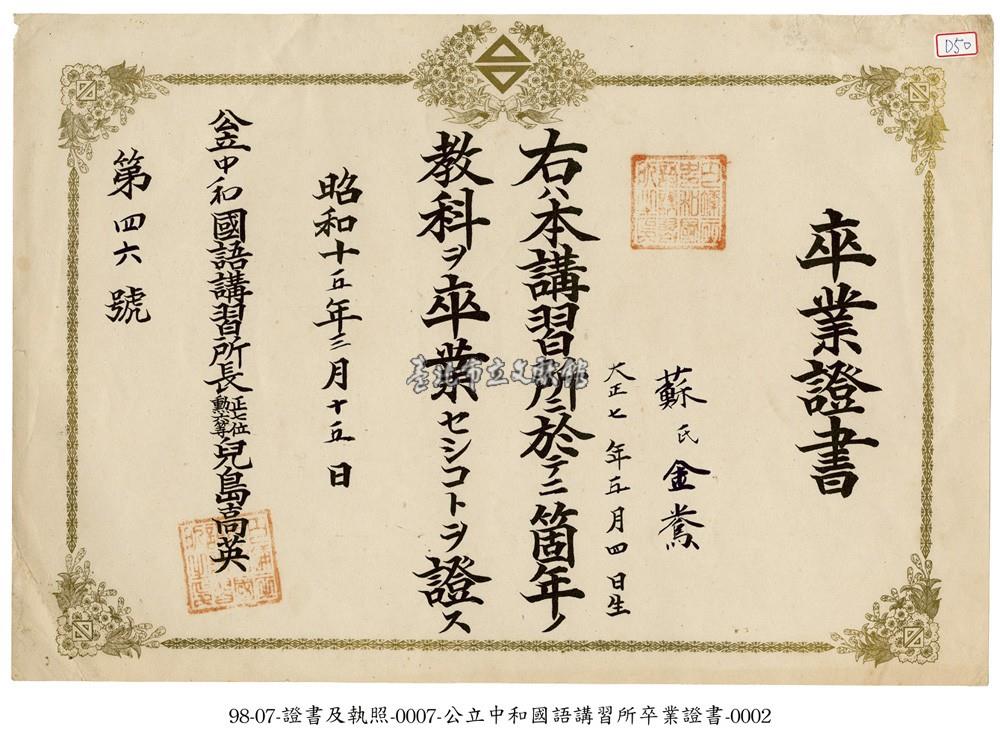 D50
卒業證書
蘇氏金鴦
大正七年五月四日生
右ハ本講習所ニ於テ二箇年ノ
教科ヲ卒業セシコトヲ證ス
昭和十五年三月十五日
公立中和國語講習所長正七位勲六等兒島高英
第四六號
臺北市立文獻館
98-07-證書及執照-0007-公立中和國語講習所卒業證書-0002